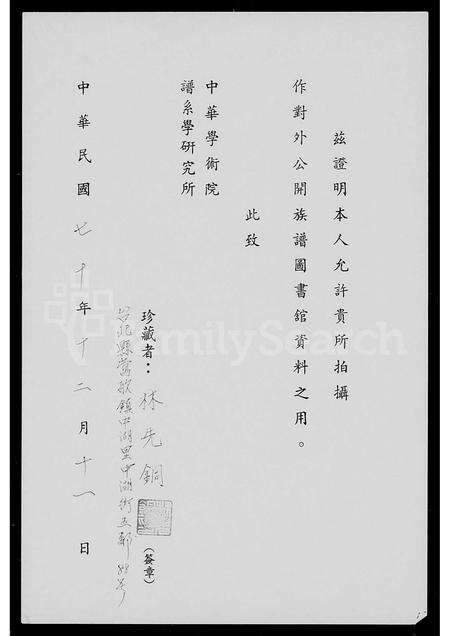 茲證明本人允許貴所拍攝
作對外公開族譜圖書館資料之用。
此致
中華學術院
譜系學研究所
珍藏者：林先銅（簽章）
台北縣鶯歌鎮中湖里中湖街五鄰
中華民國七十年十二月十一日
FamilySearch